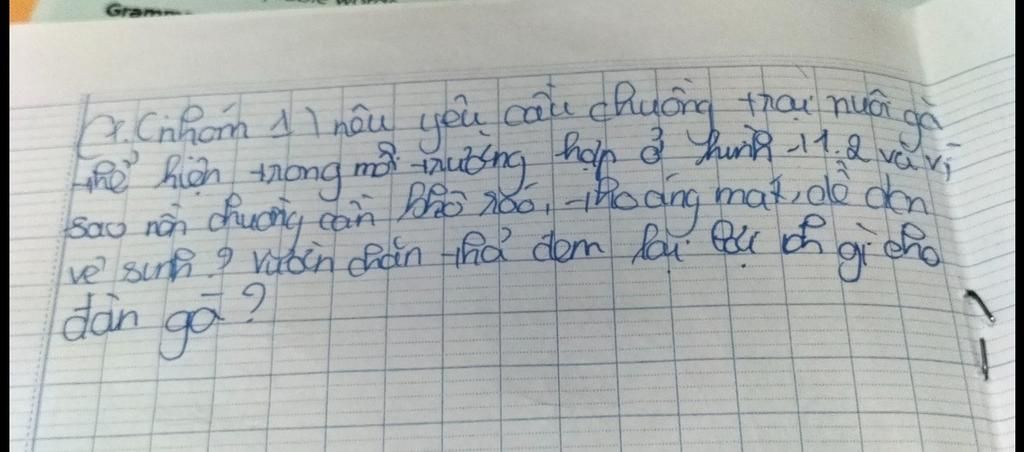 Gramm
(nhóm 1) nêu yêu cầu chuồng trại nuôi gà
thể hiện trong mỗi trường hợp ở hình 11.2 và vì
sao nền chuồng cần khô ráo, thoáng mát, dễ dọn
vệ sinh? vườn chăn thả đem lại lợi ích gì cho
đàn gà?